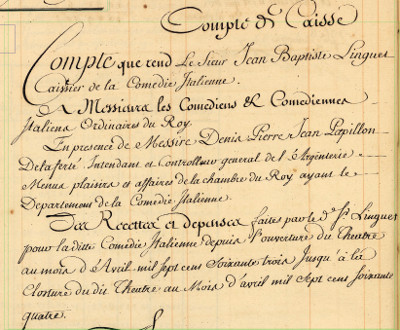 Compte de Caisse
Compte que rend Le Sieur Jean Baptiste Linguet
Caissier de la Comedie Italienne.
A Messieurs les Comediens & Comediennes
Italiens Ordinaires du Roy.
En presence de Messire Denis Pierre Jean Papillon
Delaferté Intendant et Controlleur general de l'Argenterie
Menus plaisirs et affaires de la chambre du Roy ayant le
Departement de la Comedie Italienne.
Des Recettes et depenses faites par le d. Sr. Linguet
pour la ditte Comedie Italienne depuis l'ouverture du Theatre
au mois d'Avril mil sept cens Soixante trois jusqu'à la
Closture du dit Theatre au Mois d'avril mil sept cens Soixante
quatre.